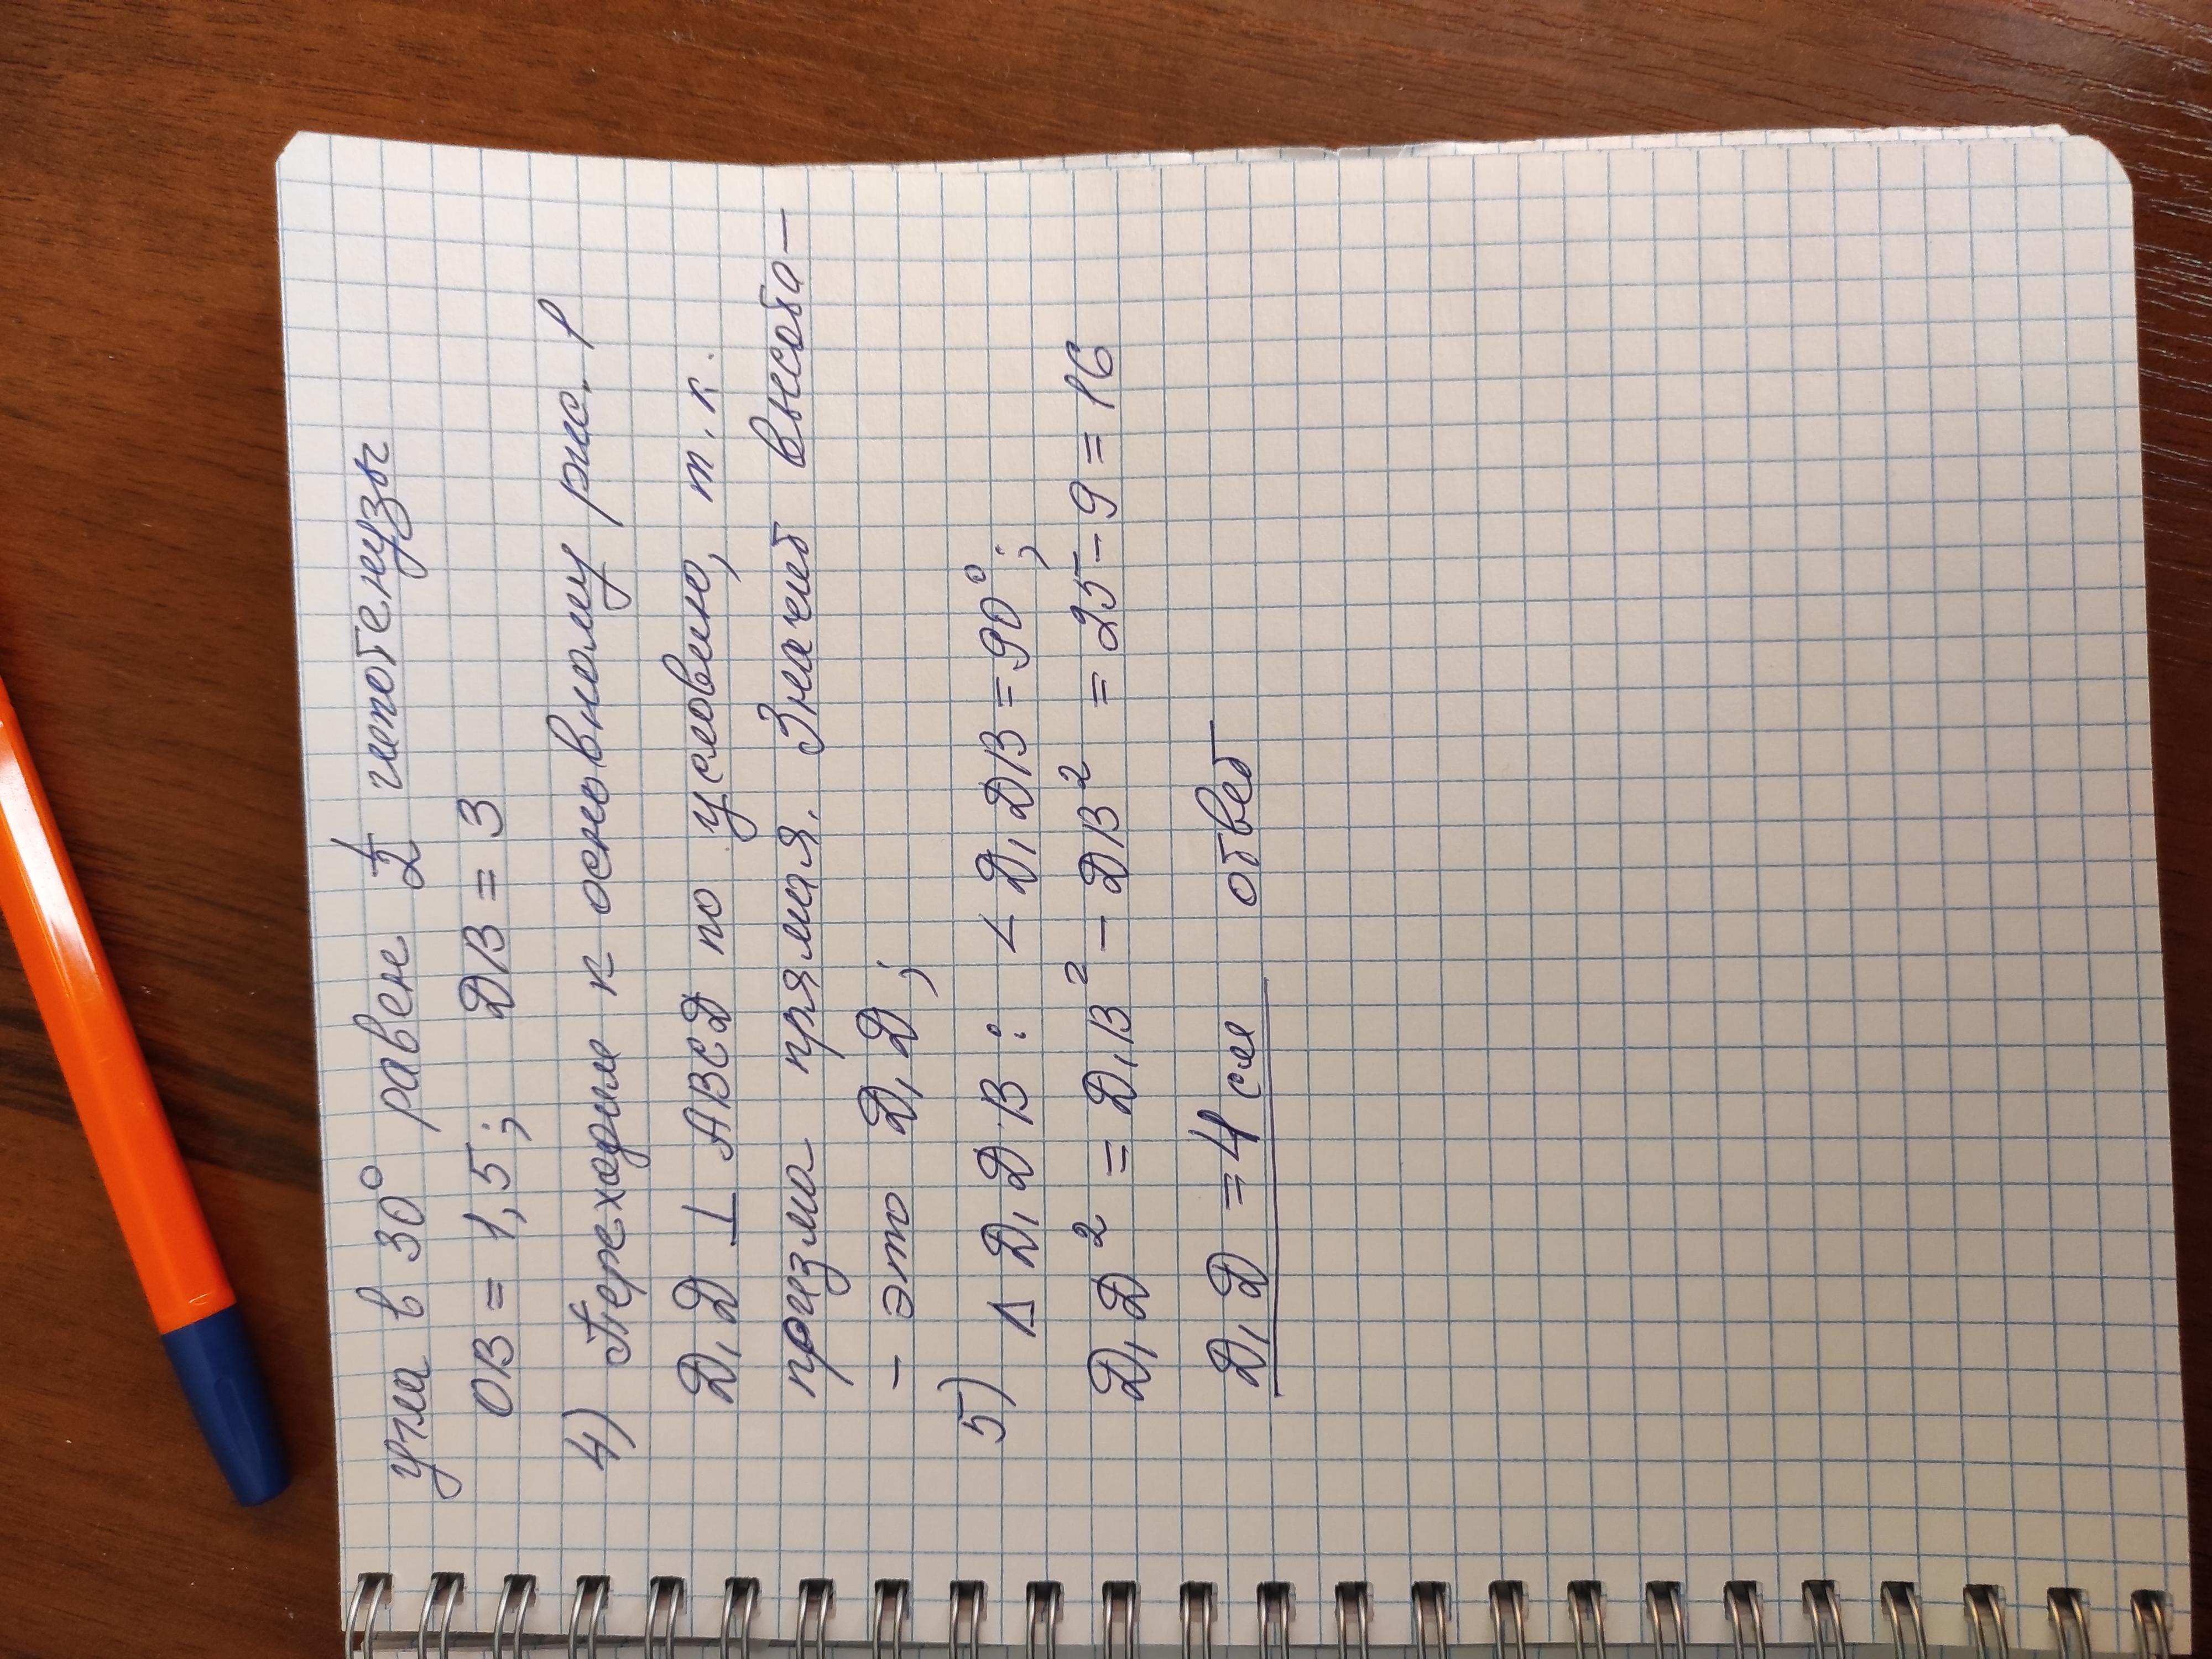 угла в 30° равен 1/2 гипотенузы
ОВ = 1,5; ДВ = 3
4) Переходим к основному рис. 1
Д₁Д ⊥ АВСД по условию, т.к.
призма прямая. Значит высота –
– это Д₁Д;
5) Δ Д₁ДВ: ∠ Д₁ДВ = 90°;
Д₁Д² = Д₁В² – ДВ² = 25 – 9 = 16
Д₁Д = 4 см ответ